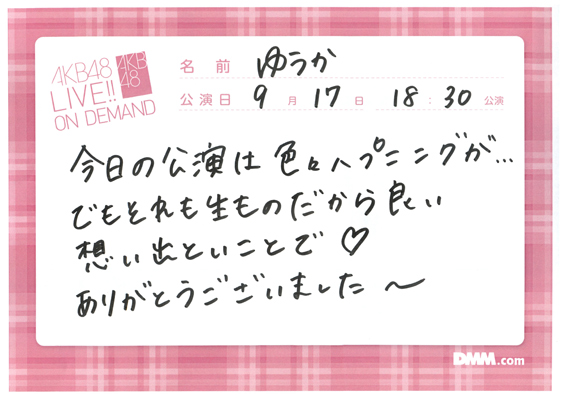 AKB48
LIVE!!
ON DEMAND
AKB
48
名前 ゆうか
公演日 9月17日 18:30公演
今日の公演は色々ハプニングが…
でもそれも生ものだから良い
想い出といことで♡
ありがとうございました〜
DMM.com